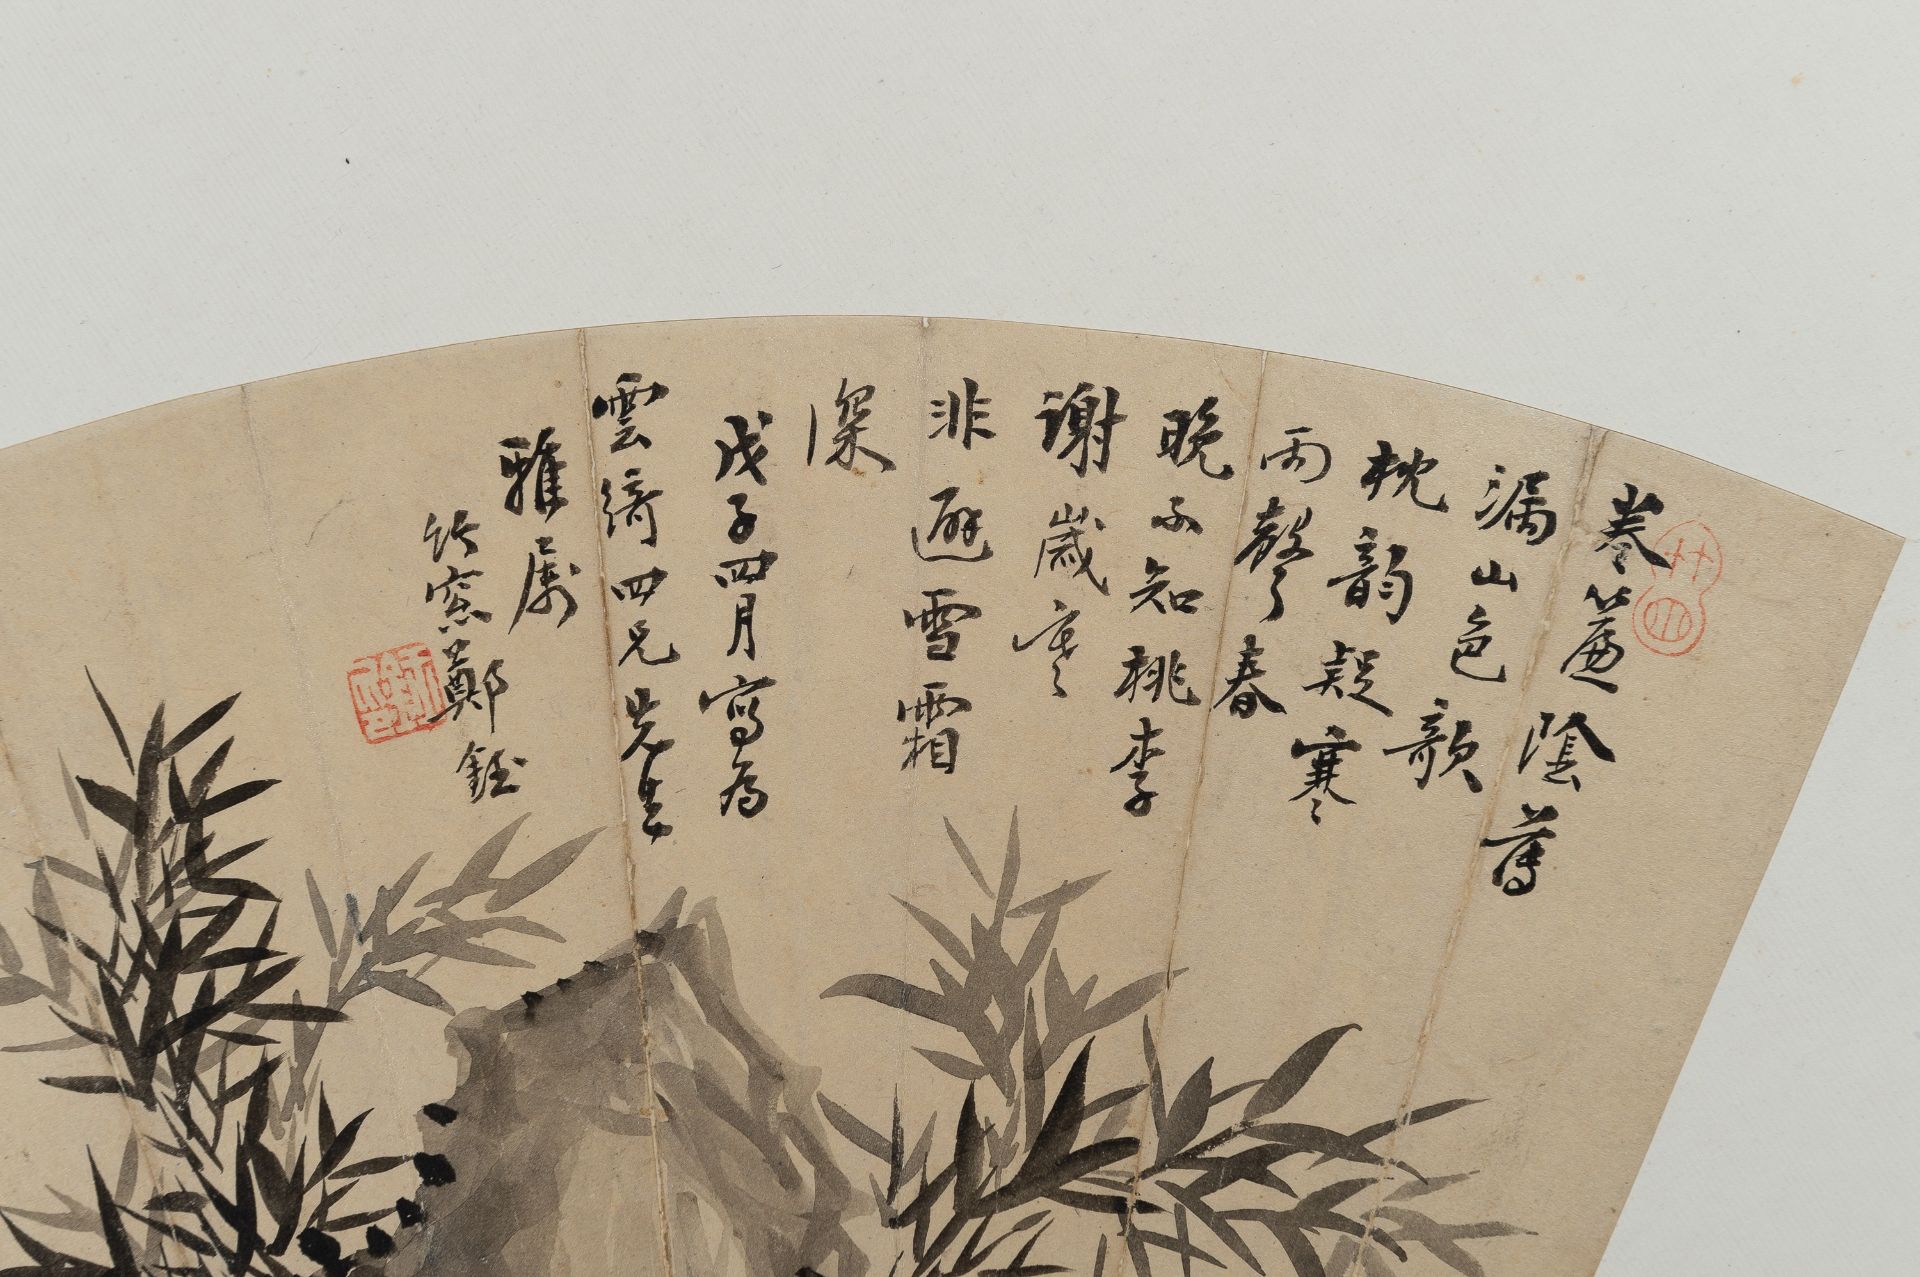 卷簾陰薄
漏山色欹
枕韵疑寒
雨聲春
晚不知桃李
謝歲寒
非避雪霜
深
戊子四月寫為
雲綺四兄先生
雅屬
竹窓鄭鈺